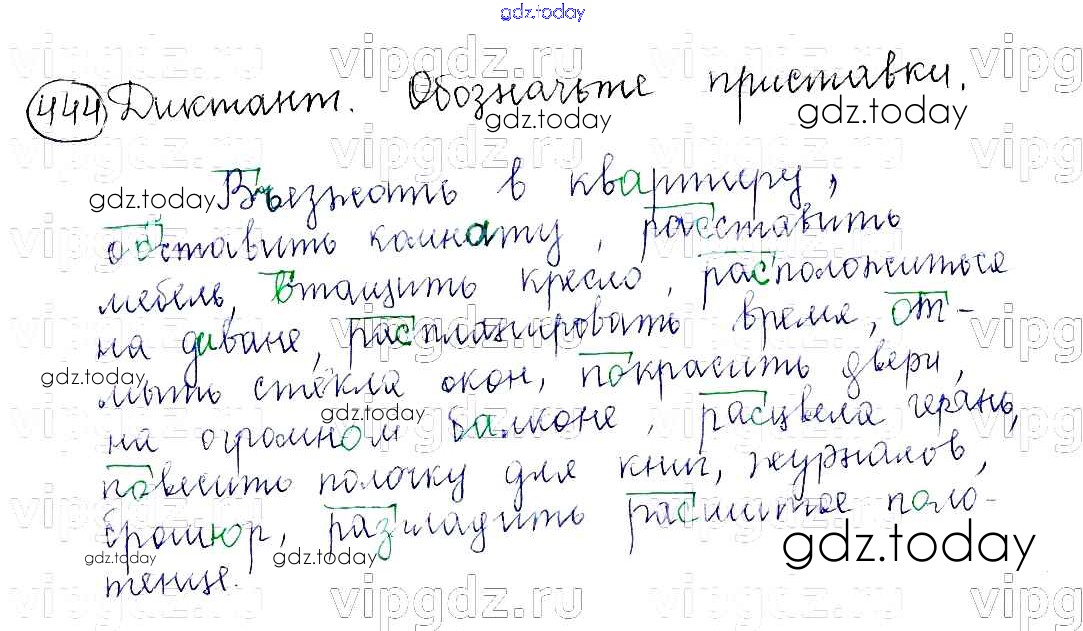 gdz.today
444 Диктант. Обозначьте приставки.
Въезжать в квартиру,
обставить комнату, расставить
мебель, втащить кресло, расположиться
на диване, распланировать время, от-
мыть стёкла окон, покрасить двери,
на огромном балконе, расцвела герань,
повесить полочку для книг, журналов,
брошюр, разгладить расшитое поло-
тенце.
gdz.today